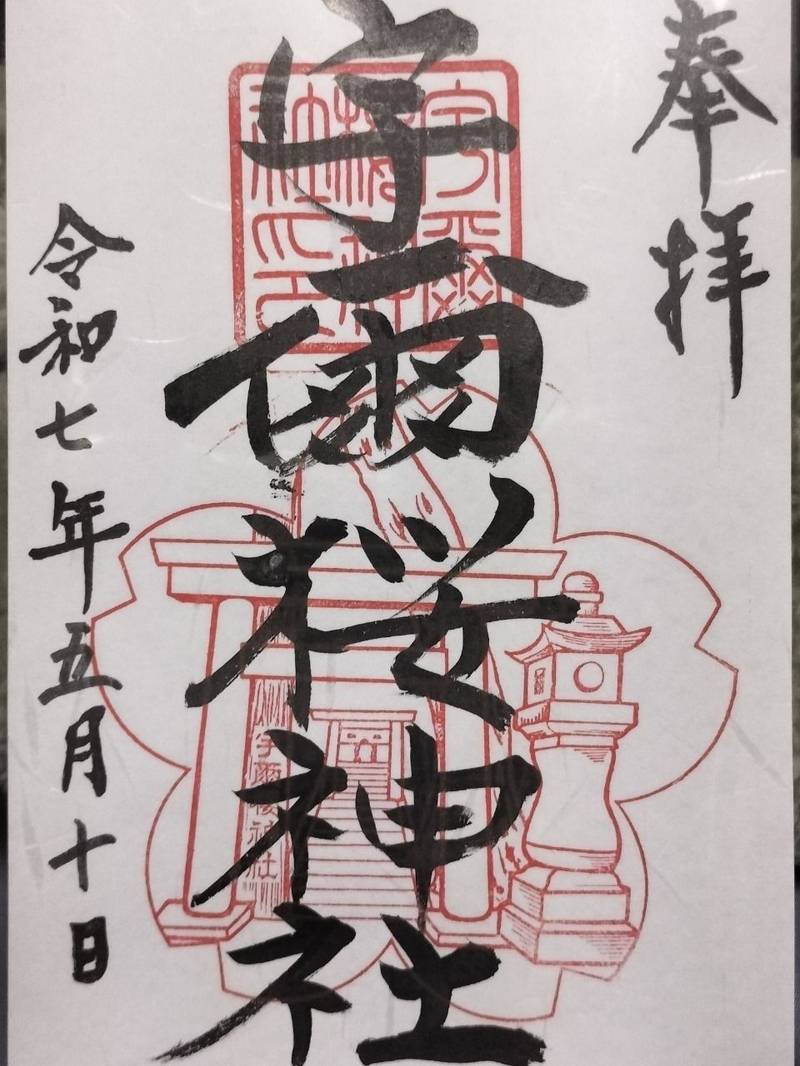 奉拝
宇爾桜神社
令和七年五月十日
宇爾
櫻神
社之印
宇爾櫻神社